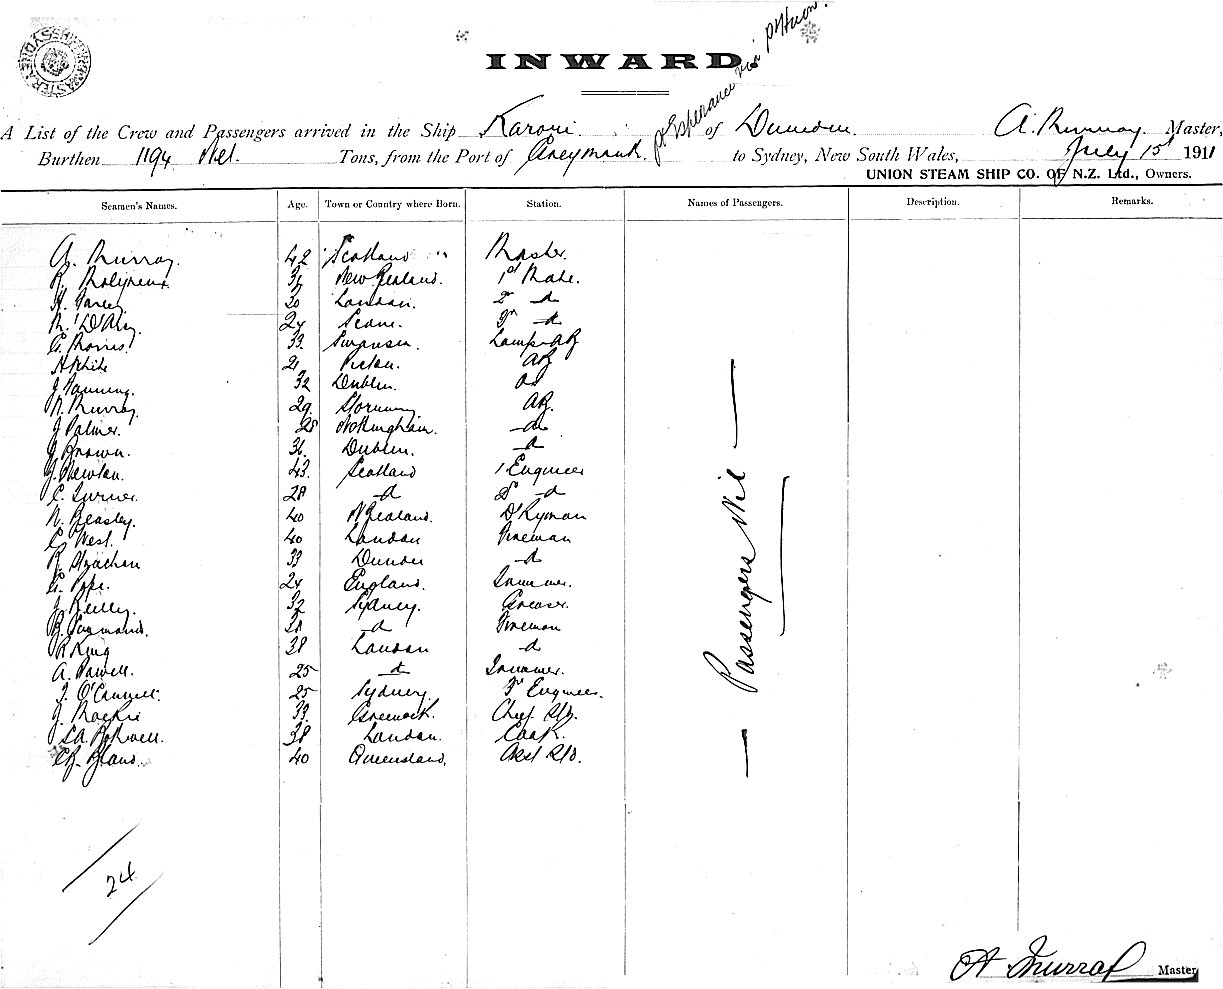 INWARD
pt Esperance via pt Huon.
A List of the Crew and Passengers arrived in the Ship Karori. of Dunedin. A. Murray. Master,
Burthen 1194 Net. Tons, from the Port of Greymouth. to Sydney, New South Wales, July 15t 1911
UNION STEAM SHIP CO. OF N.Z. Ltd., Owners.
Seamen's Names. Age. Town or Country where Born. Station. Names of Passengers. Description. Remarks.
A. Murray. 42 Scotland Master.
R. New Zealand. 1st Mate.
London. 2d d
24 3rd d
G. Morris 33. Swansea. Lamps AB
White 21 Picton. AB
J Fanning. 32 Dublin.
N. Murray. 29. AB.
J Palmer. 28 Nottingham. d
J Brown. 36. Dublin. d
J. Newton. 43. Scotland 1 Engineer
C. Turner. 28 d 2d d
N. Beasley. 40 N Zealand. Dkyman
C West. 40 London Fireman
R Strachan 33 Dundee d
G. Pope. 24 England. Trimmer.
J Reilly. 32 Sydney. Greaser.
38 d Fireman
R King 38 London d
A. Powell. 25 d Trimmer.
J. O'Connell. 25 Sydney. 3r Engineer.
J. Mackie 39. Greenock. Chief Std.
38 London. Cook.
Bland. 40 Queensland. Asst Std.
Passengers Nil
24
A Murray Master